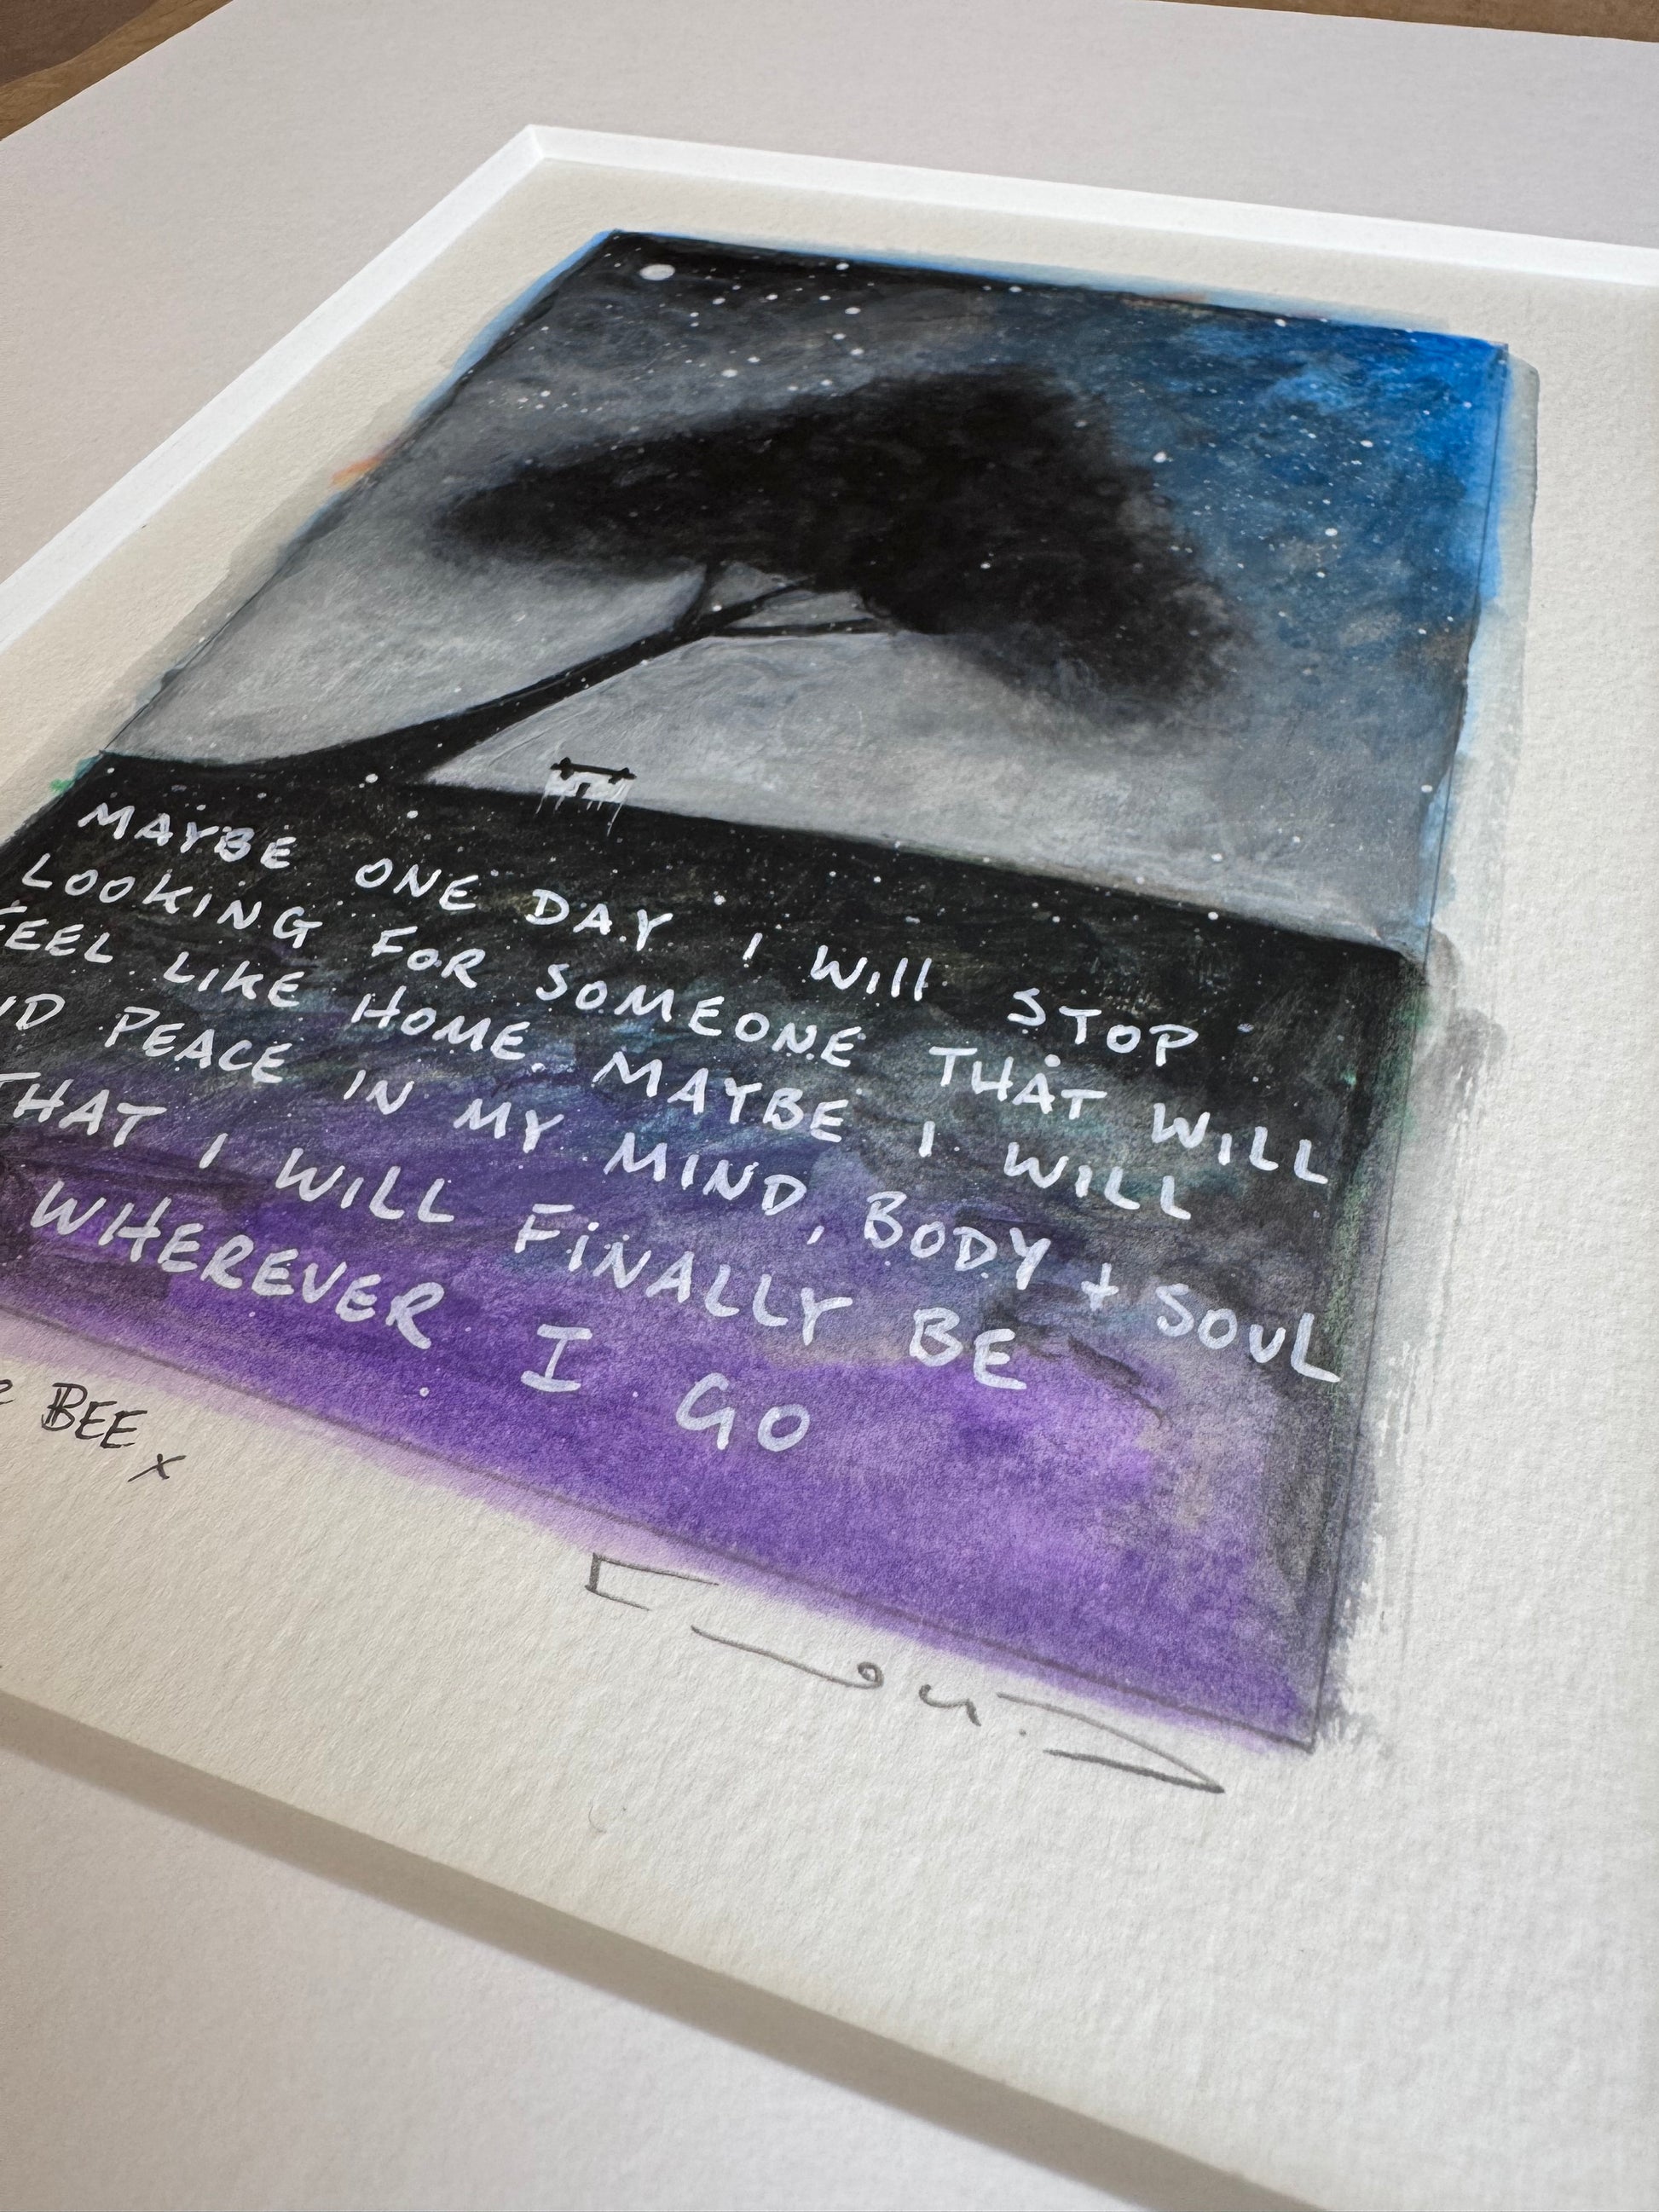 MAYBE ONE DAY I Will STOP
LOOKING FOR SOMEONE THAT WILL
FEEL LIKE HOME. MAYBE I WILL
PEACE IN MY MIND, BODY + SOUL
THAT I WILL FiNALLY BE
WHEREVER I GO
BEE x